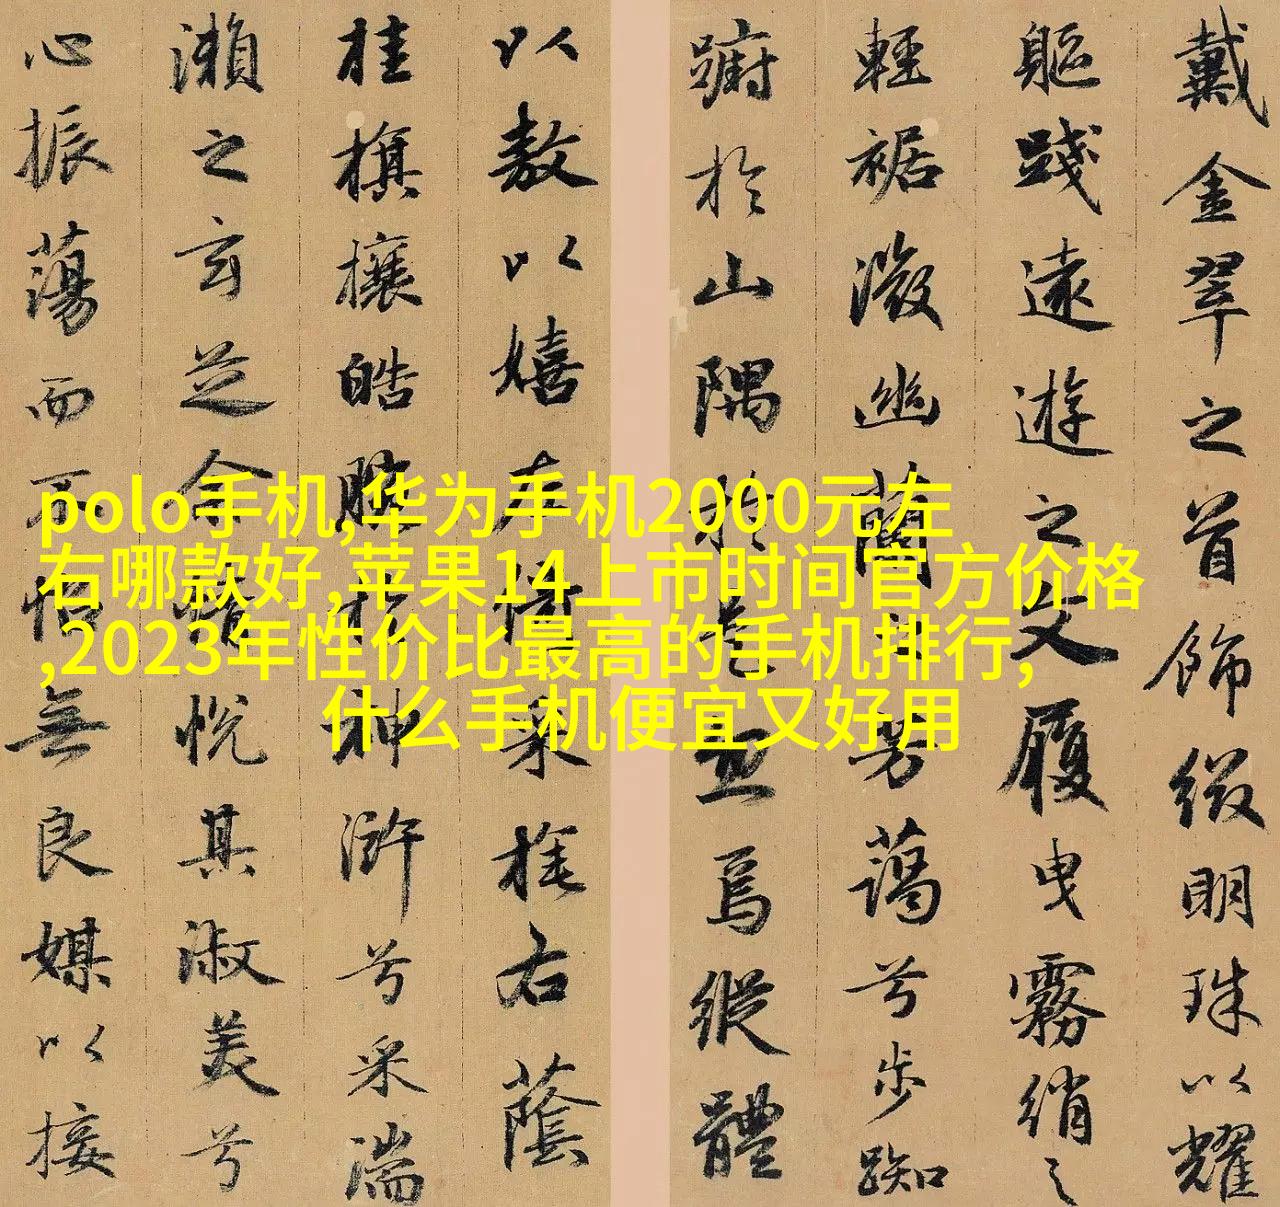 戴金翠之首飾綴明珠以耀
軀踐遠遊之文履曳霧綃之
輕裾微幽蘭之芳藹兮步踟
躕於山隅於是忽焉縱體
以敖以嬉左倚采旄右蔭
桂旗攘皓腕於神滸兮采湍
瀨之玄芝余情悅其淑美兮
心振蕩而不怡無良媒以接
polo手机,华为手机2000元左
右哪款好,苹果14上市时间官方价格
,2023年性价比最高的手机排行,
什么手机便宜又好用